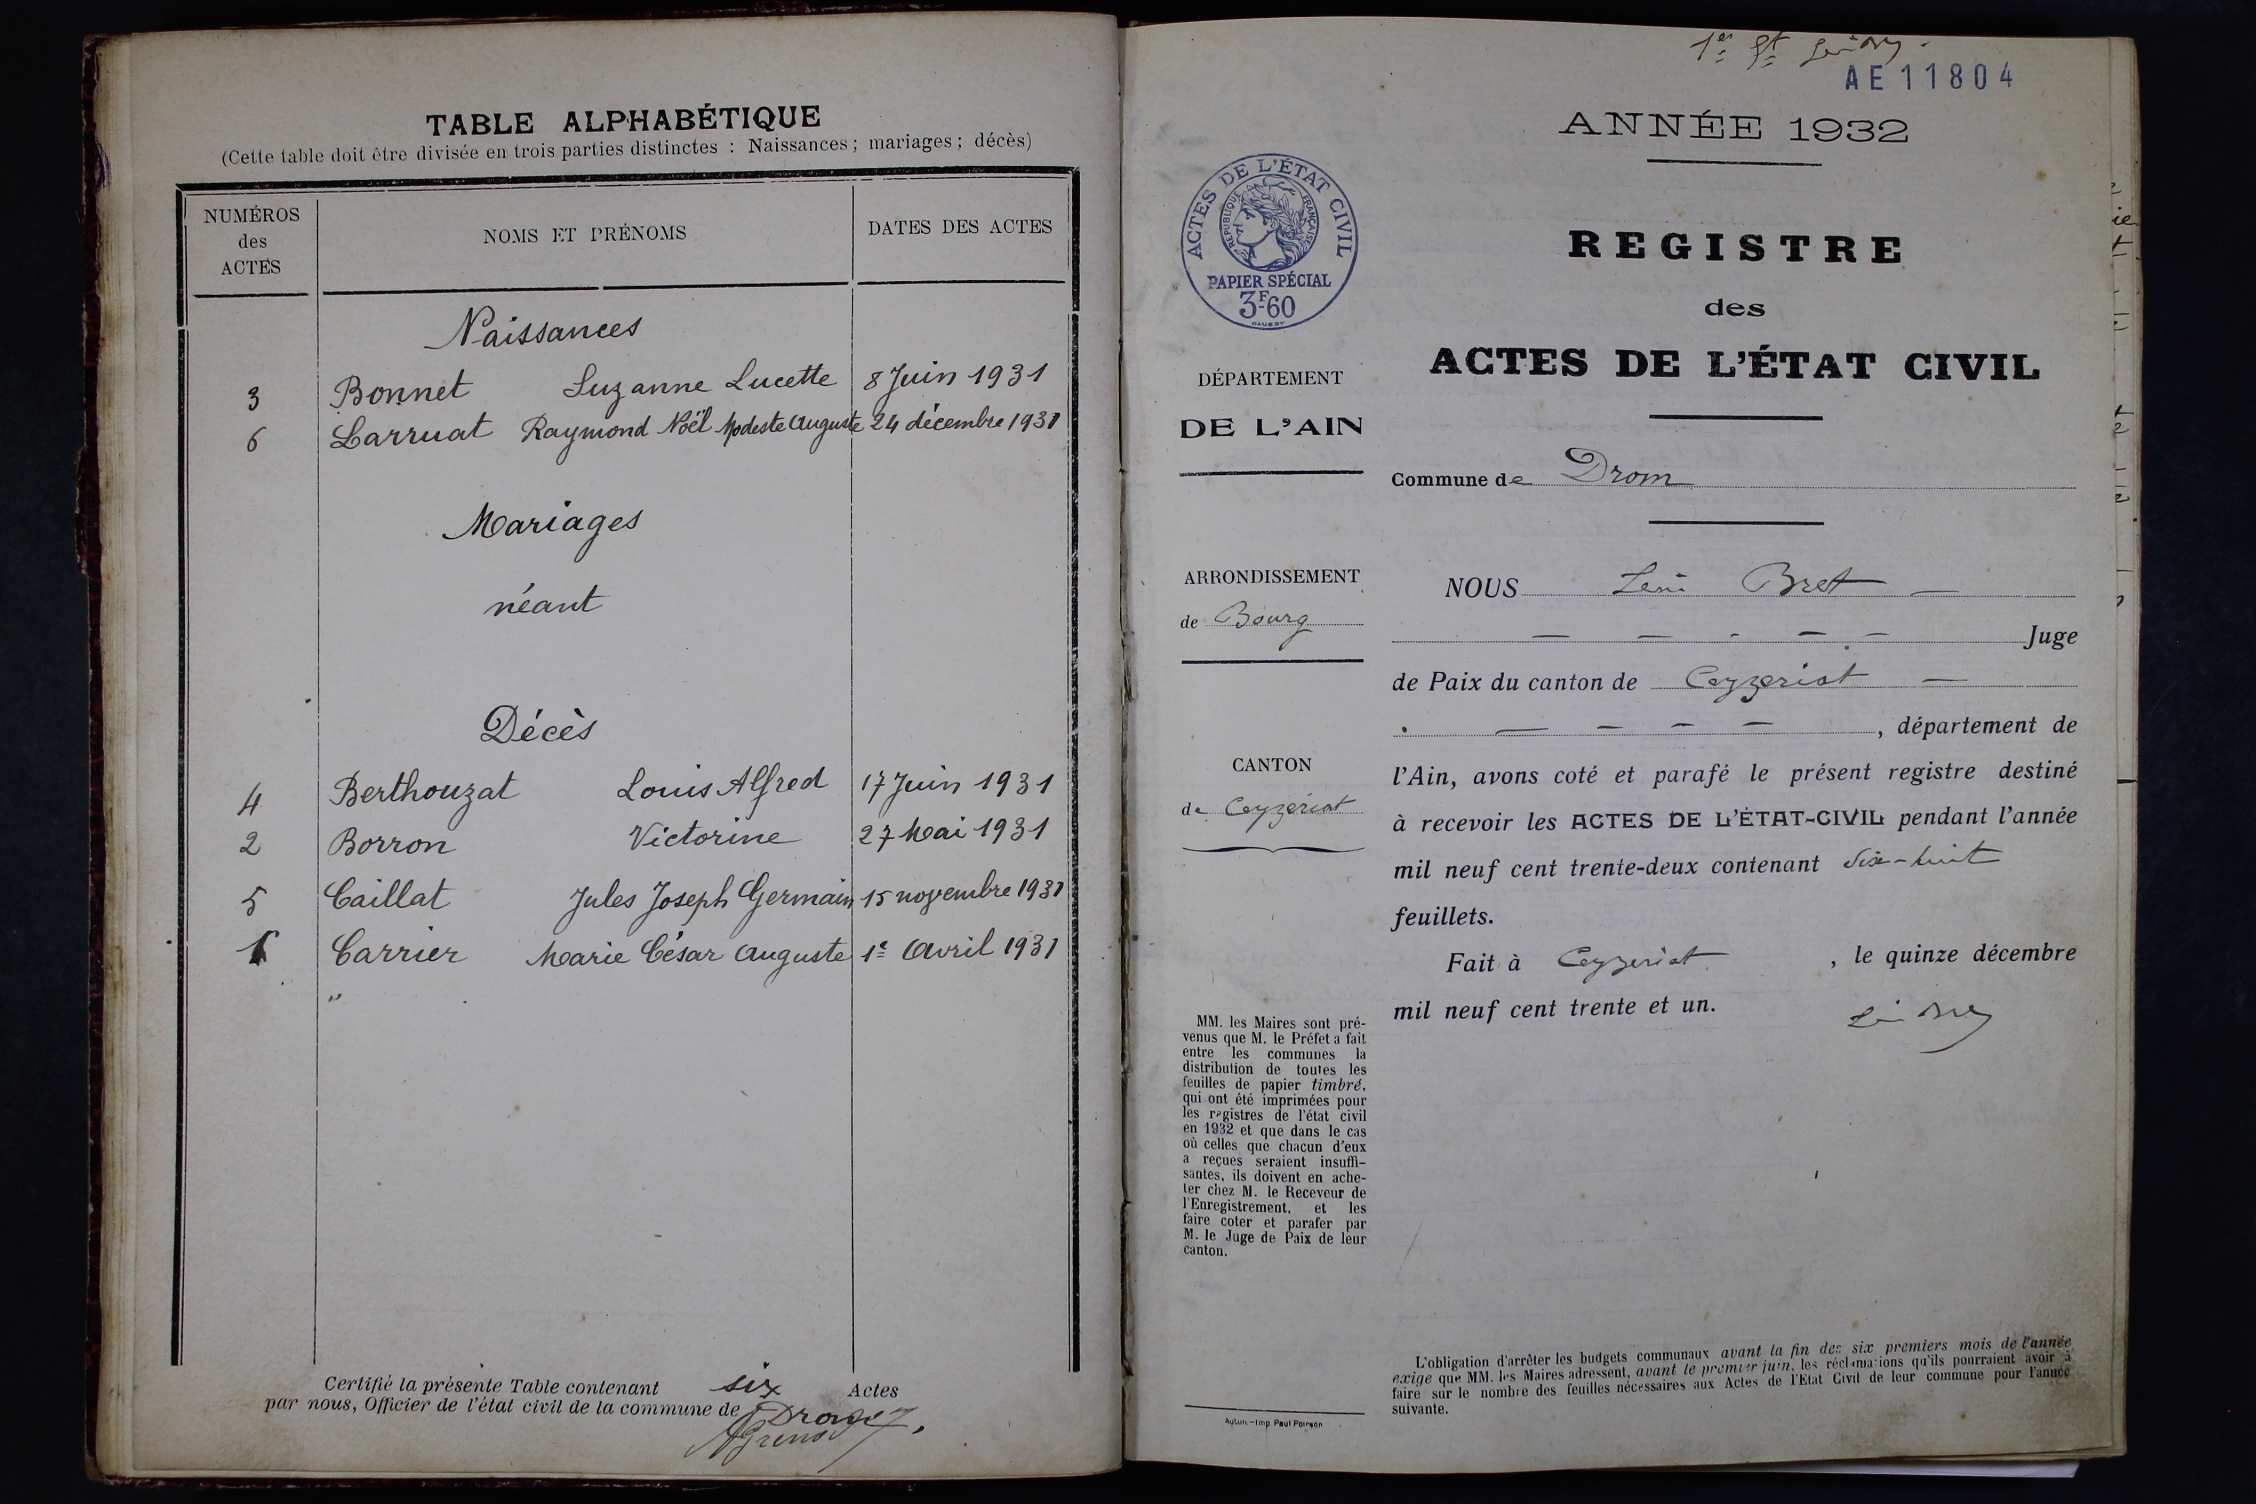 TABLE ALPHABÉTIQUE
(Cette table doit être divisée en trois parties distinctes : Naissances ; mariages ; décès)
NUMÉROS
des
ACTES
NOMS ET PRÉNOMS
DATES DES ACTES
Naissances
3 Bonnet Suzanne Lucette 8 Juin 1931
6 Larruat Raymond Noël Modeste Auguste 24 décembre 1931
Mariages
néant
Décès
4 Berthouzat Louis Alfred 17 Juin 1931
2 Borron Victorine 27 Mai 1931
5 Caillat Jules Joseph Germain 15 novembre 1931
1 Carrier Marie César Auguste 1e Avril 1931
"
Certifié la présente Table contenant six Actes
par nous, Officier de l'état civil de la commune de Drom
1er
AE11804
ANNÉE 1932
ACTES DE L'ÉTAT CIVIL
RÉPUBLIQUE FRANÇAISE
PAPIER SPÉCIAL
3F60
DÉPARTEMENT
DE L'AIN
ARRONDISSEMENT
de Bourg
CANTON
de Ceyzériat
MM. les Maires sont pré-
venus que M. le Préfet a fait
entre les communes la
distribution de toutes les
feuilles de papier timbré,
qui ont été imprimées pour
les registres de l'état civil
en 1932 et que dans le cas
où celles que chacun d'eux
a reçues seraient insuffi-
santes, ils doivent en ache-
ter chez M. le Receveur de
l'Enregistrement, et les
faire coter et parafer par
M. le Juge de Paix de leur
canton.
Autun.-Imp. Paul Poirson
REGISTRE
des
ACTES DE L'ÉTAT CIVIL
Commune de Drom
NOUS Bret —
— — - — — Juge
de Paix du canton de Ceyzeriat —
. — — — — , département de
l'Ain, avons coté et parafé le présent registre destiné
à recevoir les ACTES DE L'ÉTAT-CIVIL pendant l'année
mil neuf cent trente-deux contenant dix-huit
feuillets.
Fait à Ceyzeriat , le quinze décembre
mil neuf cent trente et un.
L'obligation d'arrêter les budgets communaux avant la fin des six premiers mois de l'année
exige que MM. les Maires adressent, avant le premier juin, les réclamations qu'ils pourraient avoir à
faire sur le nombre des feuilles nécessaires aux Actes de l'Etat Civil de leur commune pour l'année
suivante.